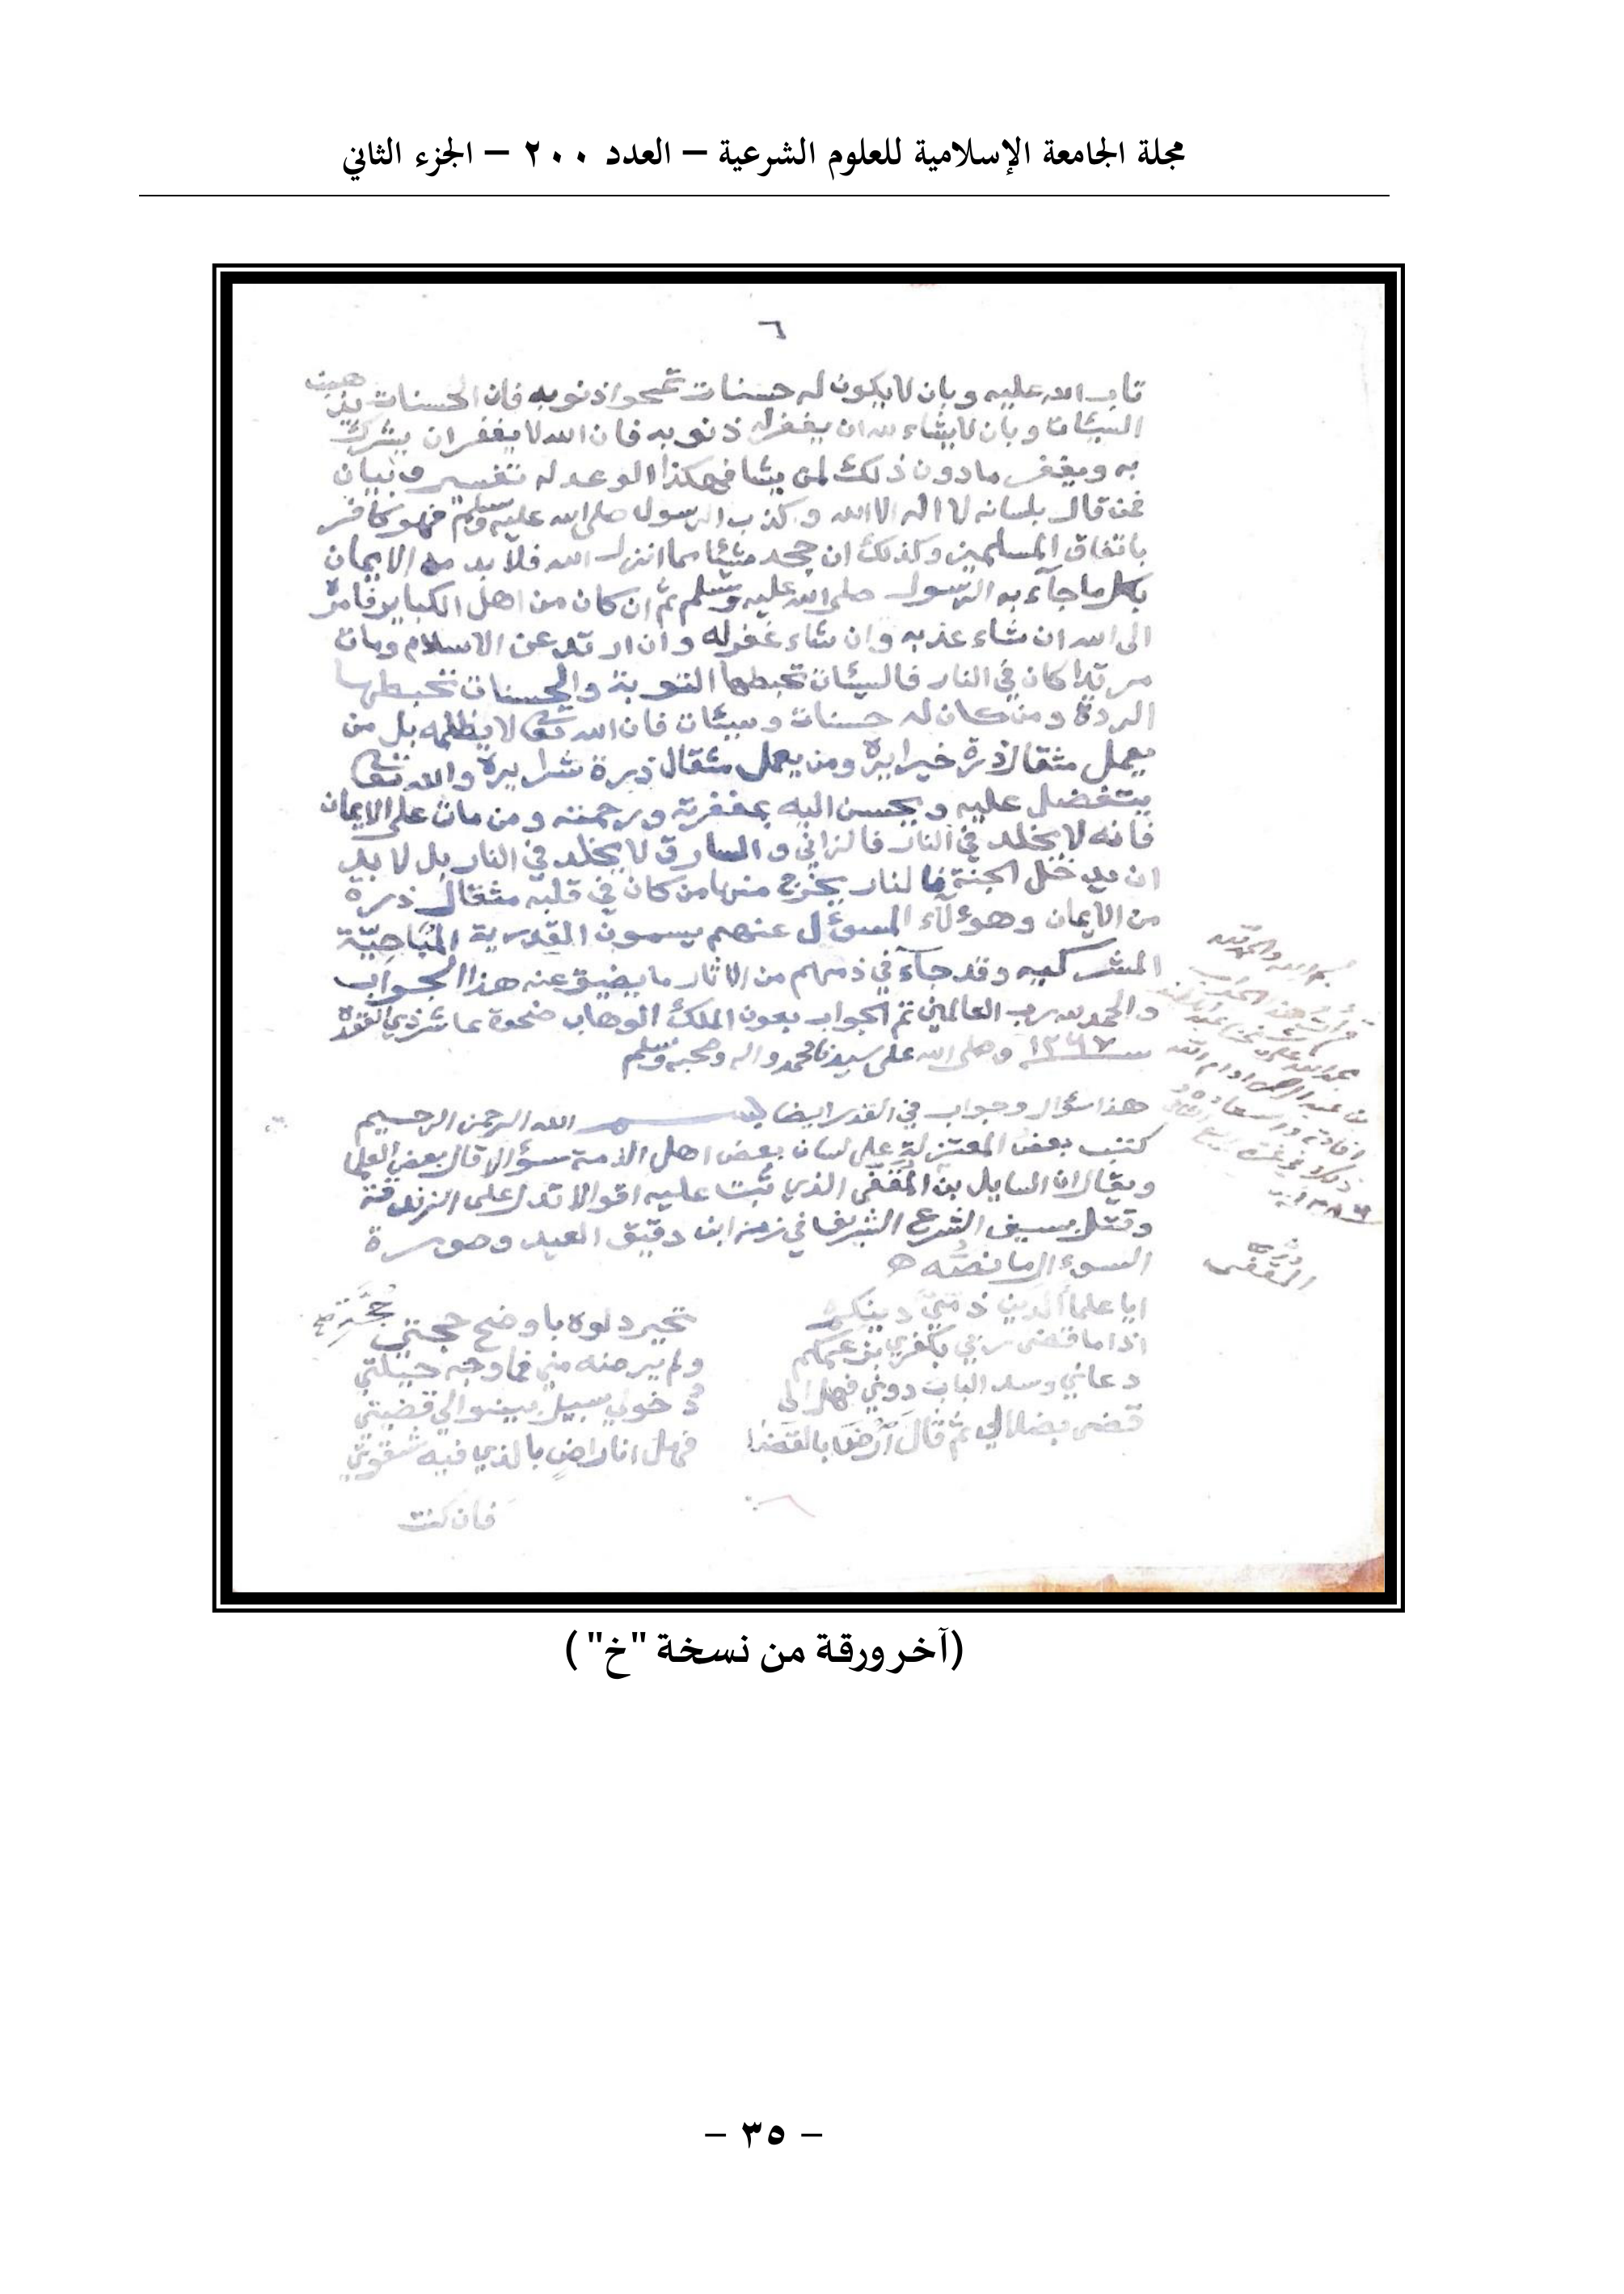 مجلة الجامعة الإسلامية للعلوم الشرعية – العدد ٢٠٠ – الجزء الثاني
٦
تاب الله عليه وبان لا يكون له حسنات تمحوا ذنوبه فان الحسنات يذهبن
السيئات وبان لا يشاء الله ان يغفر له ذنوبه فان الله لا يغفر ان يشرك
به ويغفر ما دون ذلك لمن يشا فهكذا الوعد له تفسير وبيان
فمن قال بلسانه لا اله الا الله وكذب الرسول صلى الله عليه وسلم فهو كافر
باتفاق المسلمين وكذلك ان جحد شيئا مما انزل الله فلا بد من الايمان
بكل ما جآء به الرسول صلى الله عليه وسلم ثم ان كان من اهل الكباير فامره
الى الله ان شاء عذبه وان شاء غفر له وان ارتد عن الاسلام ومات
مرتدا كان في النار فالسيئات تحبطها التوبة والحسنات تحبطها
الردة ومن كان له حسنات وسيئات فان الله تعالى لا يظلمه بل من
يعمل مثقال ذرة خيرا يره ومن يعمل مثقال ذرة شرا يره والله تعالى
يتفضل عليه ويحسن اليه بمغفرته ورحمته ومن مات على الايمان
فانه لا يخلد في النار فالزاني والسارق لا يخلد في النار بل لا بد
ان يدخل الجنة فالنار يخرج منها من كان في قلبه مثقال ذرة
من الايمان وهوءلآء المسوءل عنهم يسمون القدرية المباحيّة
المشركيه وقد جآء في ذمهم من الاثار ما يضيق عنه هذا الجواب
والحمد لله رب العالمين تم الجواب بعون الملك الوهاب ضحوة عاشر ذي القعدة
وصلى الله على سيدنا محمد واله وصحبه وسلم
هذا سؤال وجواب في القدر ايضا بسم الله الرحمن الرحيم
كتب بعض المعتزلة على لسان بعض اهل الذمة سؤالا قال بعض العلما
ويقال ان السايل بن المُقفَّى الذي ثبت عليه اقوالا تدل على الزندقة
وقتل بسيف الشرع الشريف في زمن ابن دقيق العيد وصورة
السوءال ما نصُّه ه
ايا علمآ الدين ذمّي دينكم تحير دلوه باوضح حجتي
حُجَّةٍ
اذا ما قضى ربي بكفري بزعمكم ولم يرضه مني فما وجه حيلتي
دعاني وسد الباب دوني فهل الى دخولي سبيل بينوا لي قضيتي
قضى بضلالي ثم قال ارض بالقضا فهل انا راضٍ بالذي فيه شقوتي
فان كنت
بسم الله والحمد لله
المقفى
(آخر ورقة من نسخة "خ")
– ٣٥ –